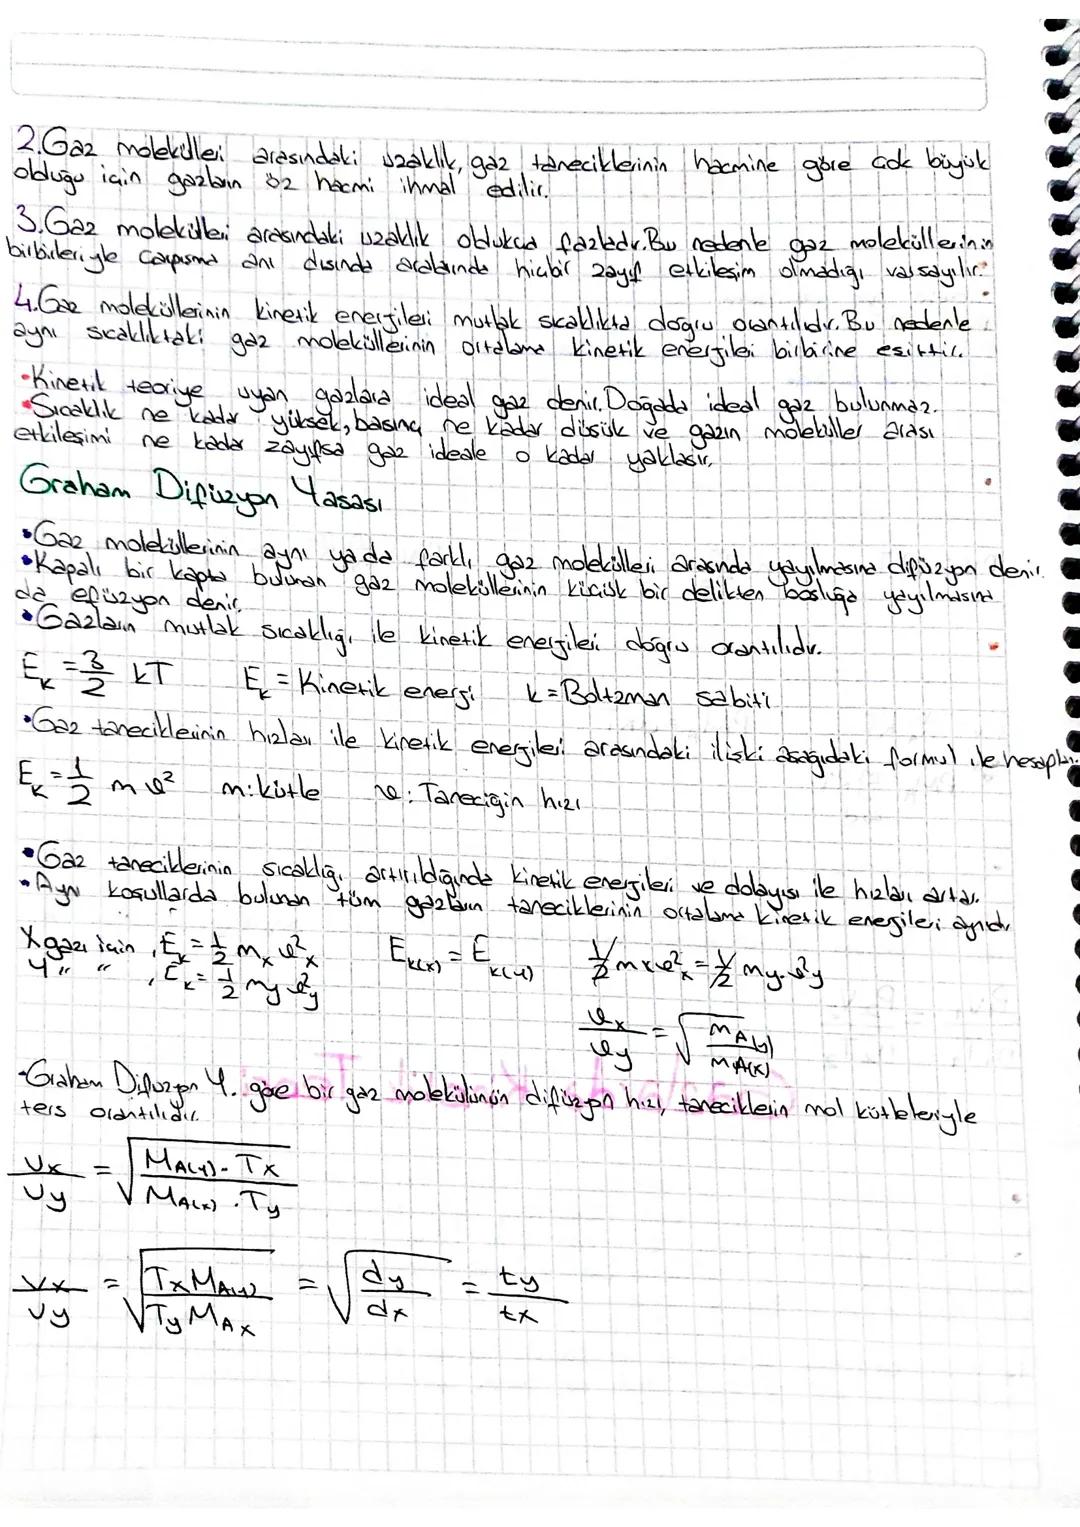 2.Gaz molekülleri arasındaki uzaklık, gaz taneciklerinin hacmine göre çok büyük
olduğu için gazların öz hacmi ihmal edilir.
3.Gaz molekülleri arasındaki uzaklık oldukça fazladır.Bu nedenle gaz moleküllerinin
birbirleriyle çarpışma anı dışında aralarında hiçbir zayıf etkileşim olmadığı varsayılır.
4.Gaz moleküllerinin kinetik enerjileri mutlak sıcaklıkta doğru orantılıdır.Bu nedenle
aynı sıcaklıktaki gaz moleküllerinin ortalama kinetik enerjileri birbirine eşittir.
•Kinetik teoriye uyan gazlara ideal gaz denir.Doğada ideal gaz bulunmaz.
•Sıcaklık ne kadar yüksek, basınç ne kadar düşük ve gazın moleküller arası
etkileşimi ne kadar zayıfsa gaz ideale o kadar yaklaşır.
Graham Difüzyon Yasası
•Gaz moleküllerinin aynı ya da farklı gaz molekülleri arasında yayılmasına difüzyon denir.
•Kapalı bir kapta bulunan gaz moleküllerinin küçük bir delikten boşluğa yayılmasına
da efüzyon denir.
•Gazların mutlak sıcaklığı ile kinetik enerjileri doğru orantılıdır.
E_k = 3/2 kT E_k = Kinetik enerji k = Boltzman sabiti
•Gaz taneciklerinin hızları ile kinetik enerjileri arasındaki ilişki aşağıdaki formul ile hesaplanır
E_k = 1/2 m v² m: kütle v: Taneciğin hızı
•Gaz taneciklerinin sıcaklığı artırıldığında kinetik enerjileri ve dolayısı ile hızları artar.
•Aynı koşullarda bulunan tüm gazların taneciklerinin ortalama kinetik enerjileri aynıdır
X gazı için, E_k = 1/2 m_x v²_x E_k(x) = E_k(y) 1/2 m_x v²_x = 1/2 m_y . v²_y
Y " ", E_k = 1/2 m_y v²_y
v_x / v_y = √(M_A(y) / M_A(x))
•Graham Difüzyon Y. göre bir gaz molekülünün difüzyon hızı, taneciklerin mol kütleleriyle
ters orantılıdır.
v_x / v_y = √(M_A(y) . T_x / M_A(x) . T_y)
v_x / v_y = √(T_x M_A(y) / T_y M_A x) = √(d_y / d_x) = t_y / t_x